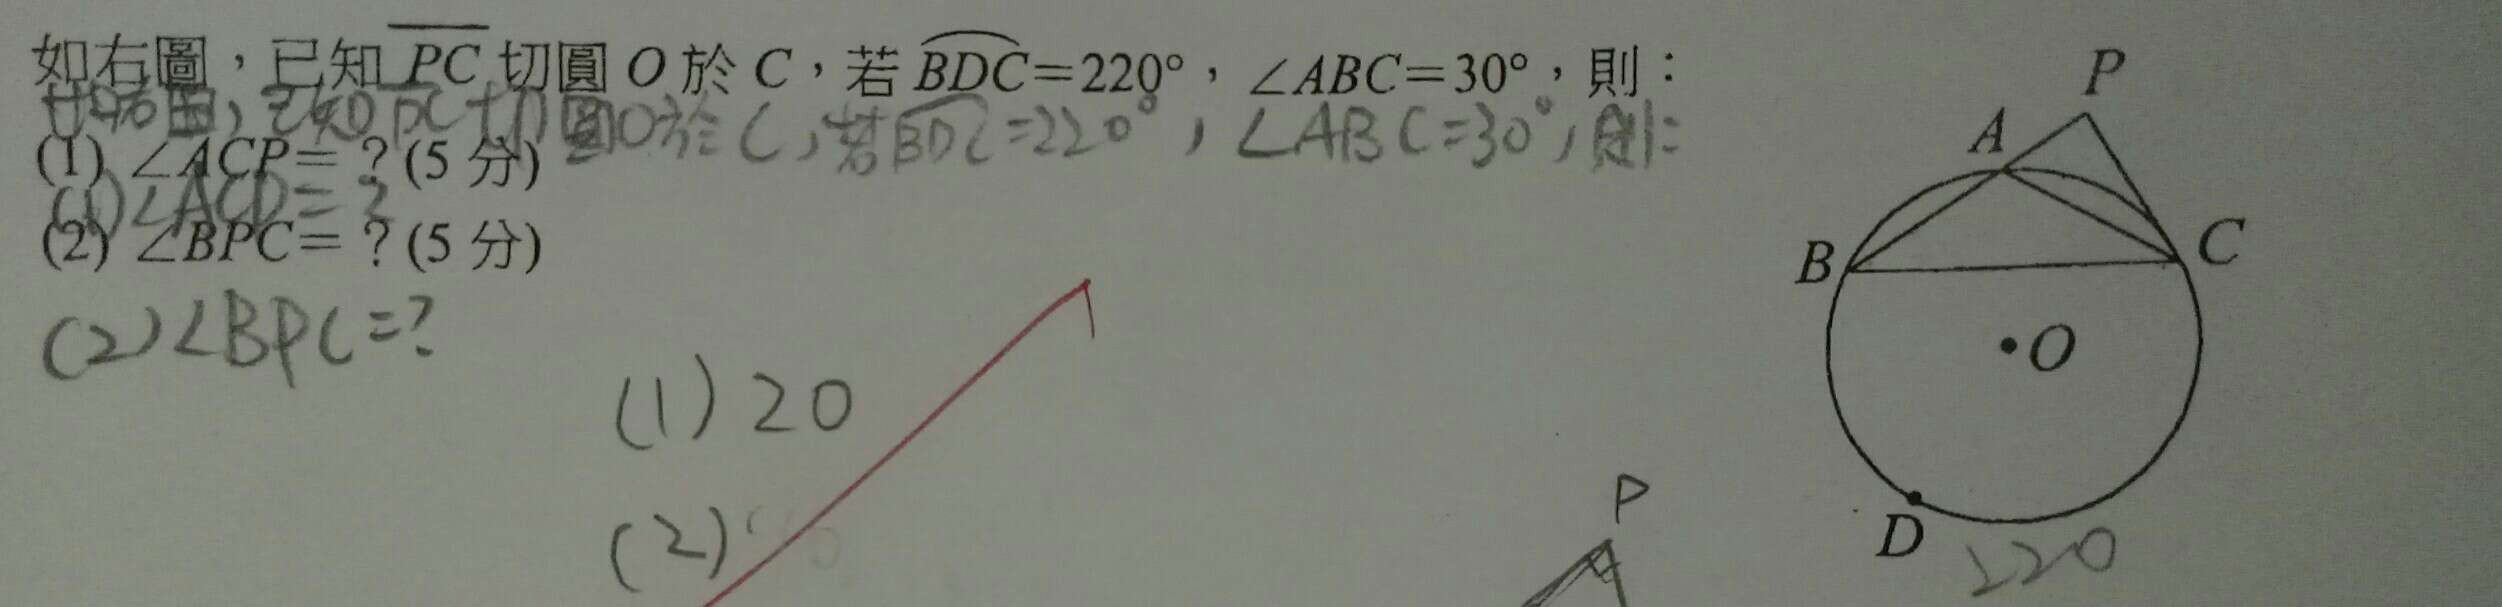 如右圖，已知 PC 切圓 O 於 C，若 BDC=220°，∠ABC=30°，則：
如右圖，已知 PC 切圓O於C，若BDC=220°，∠ABC=30°，則：
(1) ∠ACP=？(5 分)
(1)∠ACP=?
(2) ∠BPC=？(5 分)
(2)∠BPC=?
(1) 20
(2)
P
A
B
C
O
D
220
P